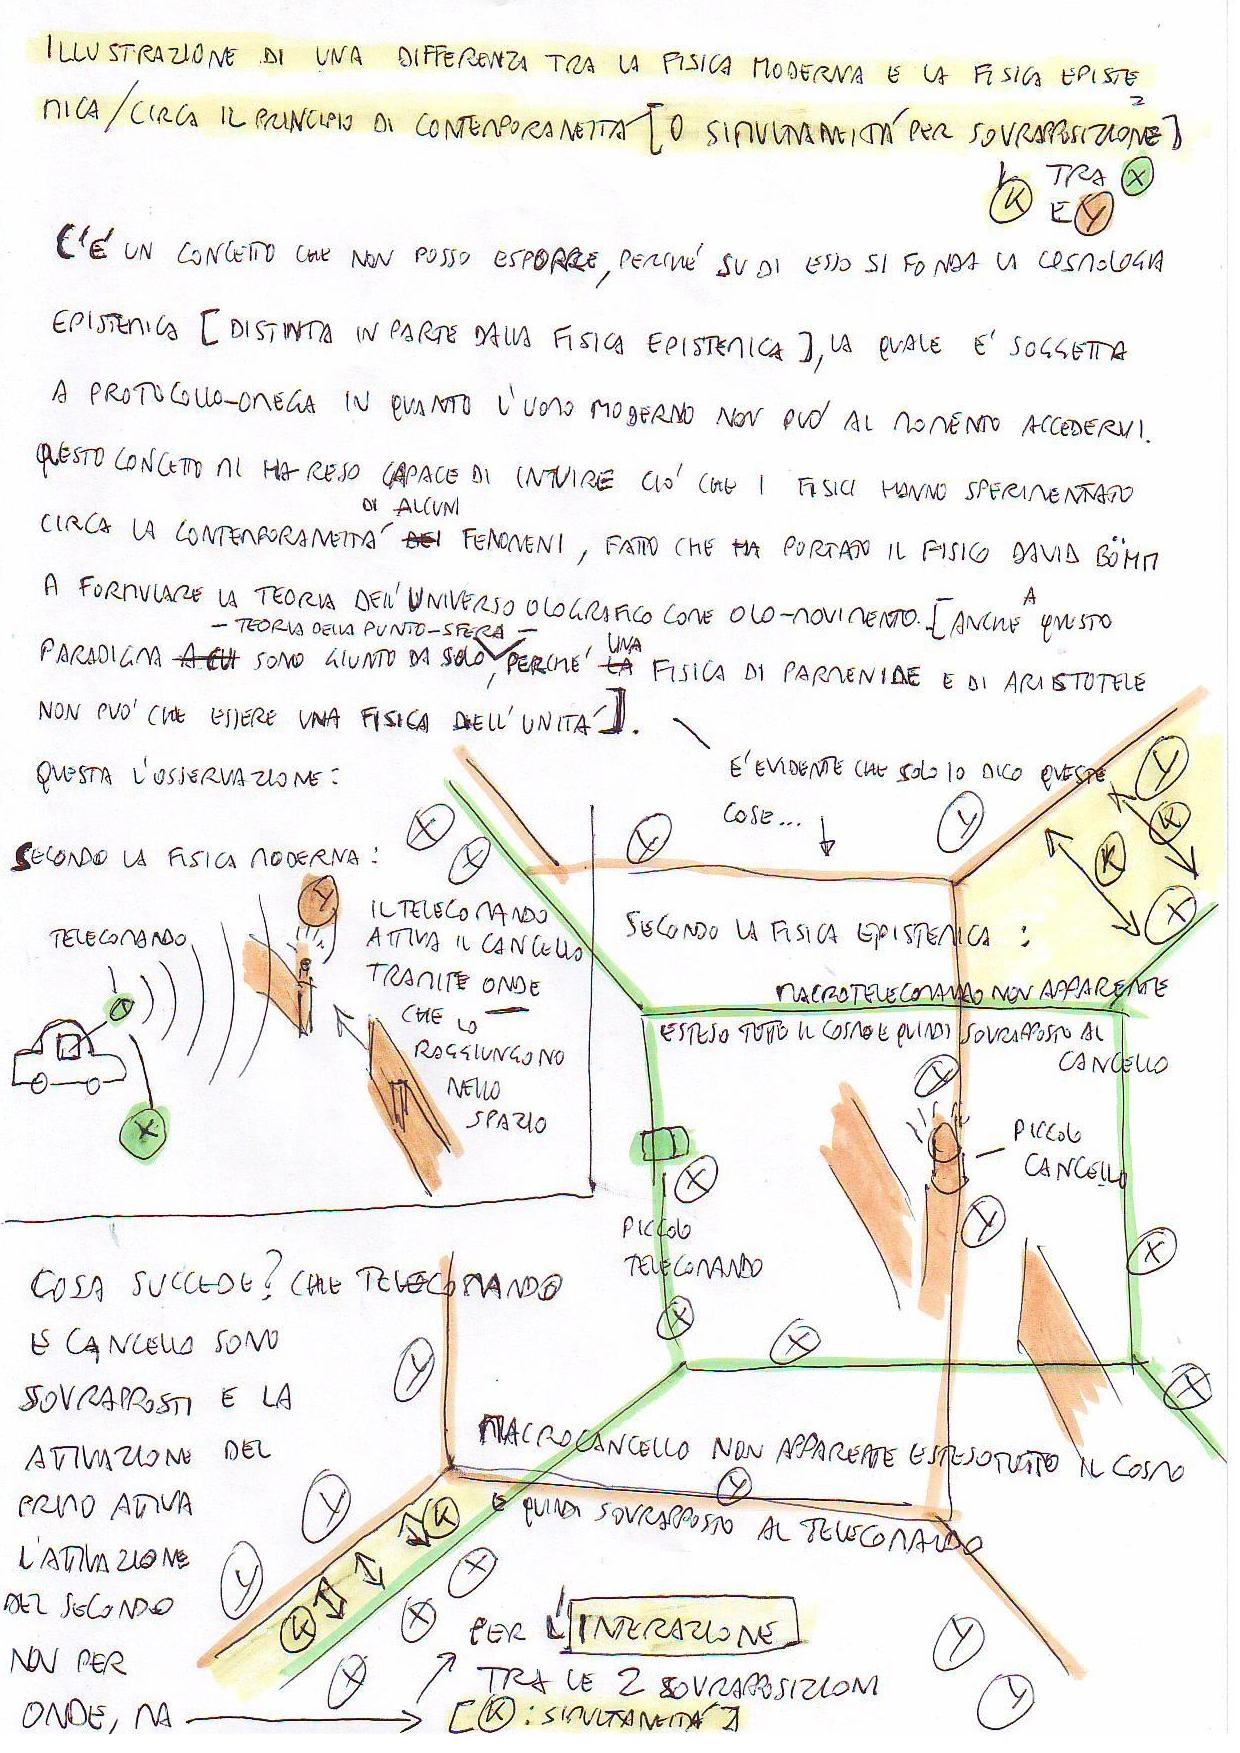 ILLUSTRAZIONE DI UNA DIFFERENZA TRA LA FISICA MODERNA E LA FISICA EPISTE
MICA/CIRCA IL PRINCIPIO DI CONTEMPORANEITA' [O SIMULTANEITA' PER SOVRAPPOSIZIONE]
K TRA X
E Y
C'E' UN CONCETTO CHE NON POSSO ESPORRE, PERCHE' SU DI ESSO SI FONDA LA COSMOLOGIA
EPISTEMICA [DISTINTA IN PARTE DALLA FISICA EPISTEMICA], LA QUALE E' SOGGETTA
A PROTOCOLLO-OMEGA IN QUANTO L'UOMO MODERNO NON PUO' AL MOMENTO ACCEDERVI.
QUESTO CONCETTO MI HA RESO CAPACE DI INTUIRE CIO' CHE I FISICI HANNO SPERIMENTATO
CIRCA LA CONTEMPORANEITA' DI ALCUNI FENOMENI, FATTO CHE HA PORTATO IL FISICO DAVID BÖHM
A FORMULARE LA TEORIA DELL'UNIVERSO OLOGRAFICO COME OLO-MOVIMENTO. [ANCHE A QUESTO
PARADIGMA SONO GIUNTO DA SOLO - TEORIA DELLA PUNTO-SFERA -, PERCHE' UNA FISICA DI PARMENIDE E DI ARISTOTELE
NON PUO' CHE ESSERE UNA FISICA DELL'UNITA'].
QUESTA L'OSSERVAZIONE:
E' EVIDENTE CHE SOLO IO DICO QUESTE
COSE...
SECONDO LA FISICA MODERNA:
TELECOMANDO
X
Y
IL TELECOMANDO
ATTIVA IL CANCELLO
TRAMITE ONDE
CHE LO
RAGGIUNGONO
NELLO
SPAZIO
X
X
Y
Y
Y
K
K
X
SECONDO LA FISICA EPISTEMICA:
MACROTELECOMANDO NON APPARENTE
ESTESO TUTTO IL COSMO E QUINDI SOVRAPPOSTO AL
CANCELLO
Y
PICCOLO
CANCELLO
X
Y
PICCOLO
TELECOMANDO
X
X
X
X
COSA SUCCEDE? CHE TELECOMANDO
E CANCELLO SONO
SOVRAPPOSTI E LA
ATTIVAZIONE DEL
PRIMO ATTIVA
L'ATTIVAZIONE
DEL SECONDO
NON PER
ONDE, MA
Y
MACROCANCELLO NON APPARENTE ESTESO TUTTO IL COSMO
Y
E QUINDI SOVRAPPOSTO AL TELECOMANDO
Y
Y
K
K
X
X
X
PER L'INTERAZIONE
TRA LE 2 SOVRAPPOSIZIONI
[K: SIMULTANEITA']
Y
Y